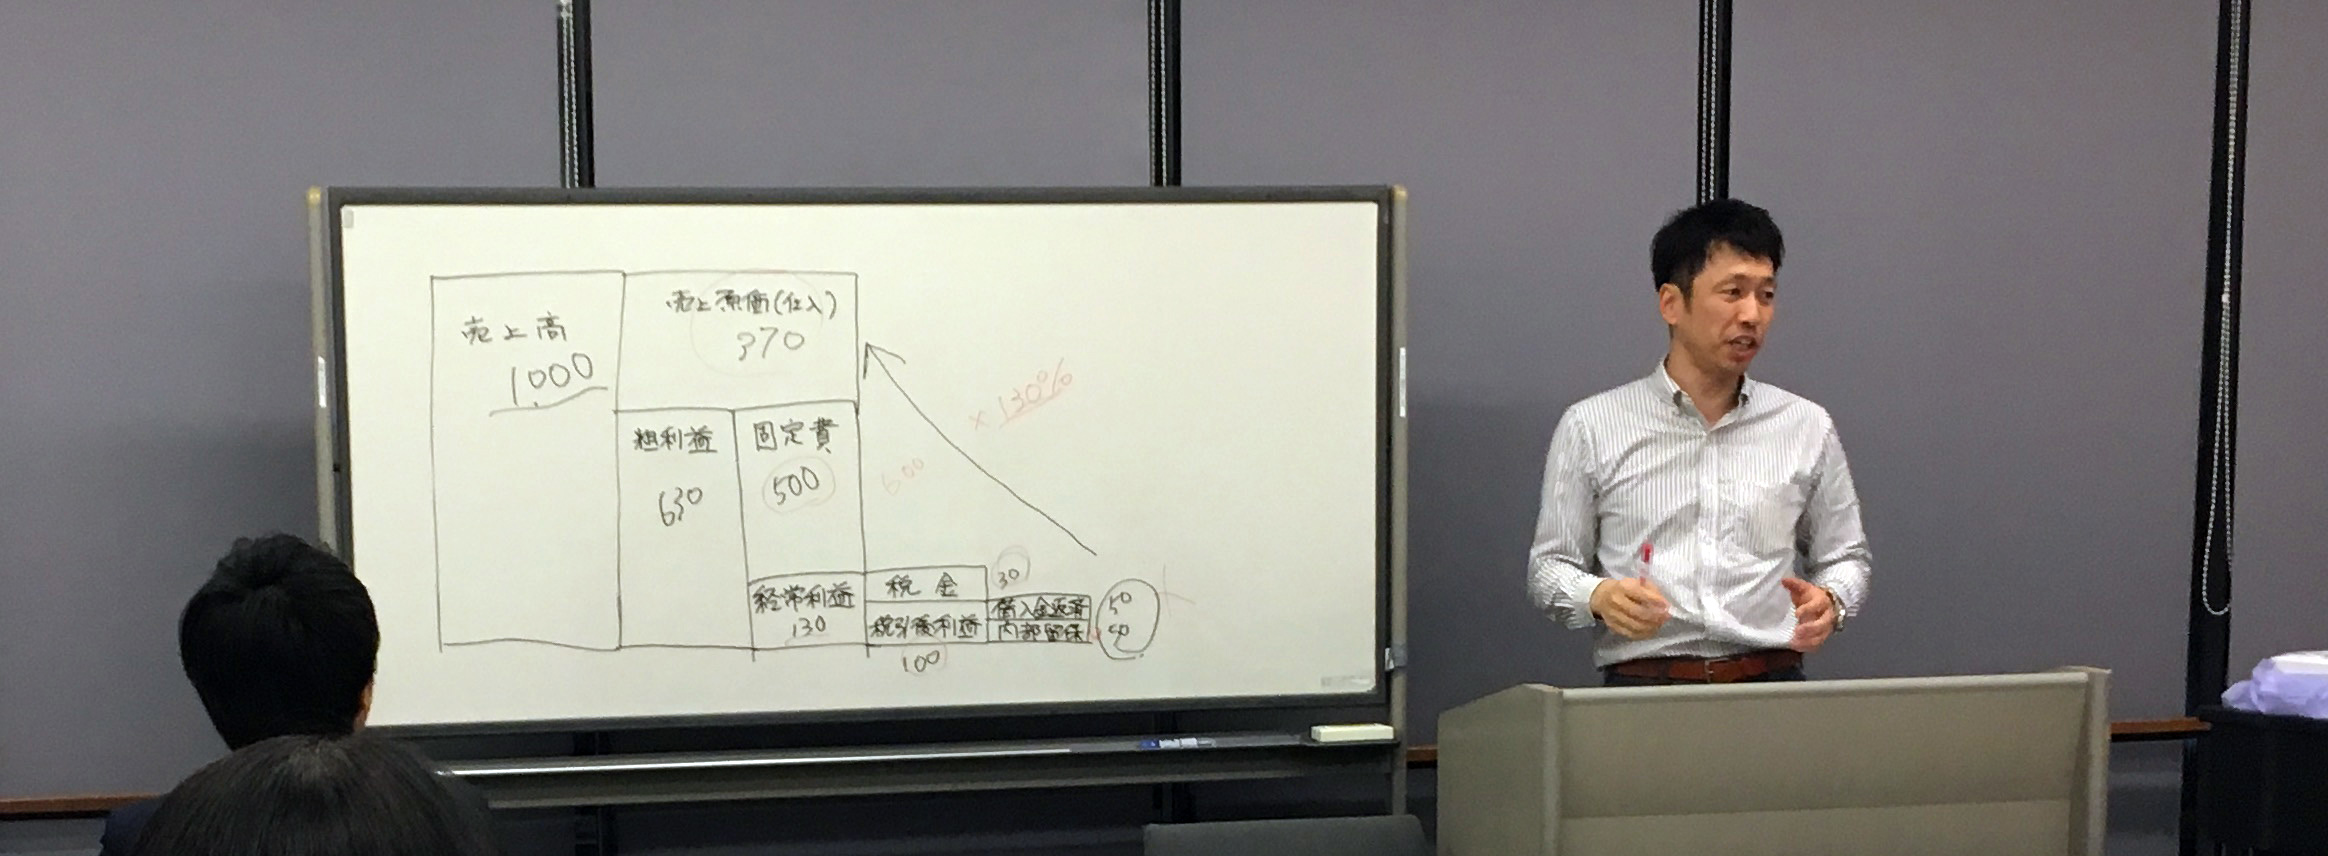 売上高
1,000
売上原価(仕入)
370
粗利益
630
固定費
500
600
×130%
経常利益
130
税金
30
税引後利益
100
借入金返済
50
内部留保
50